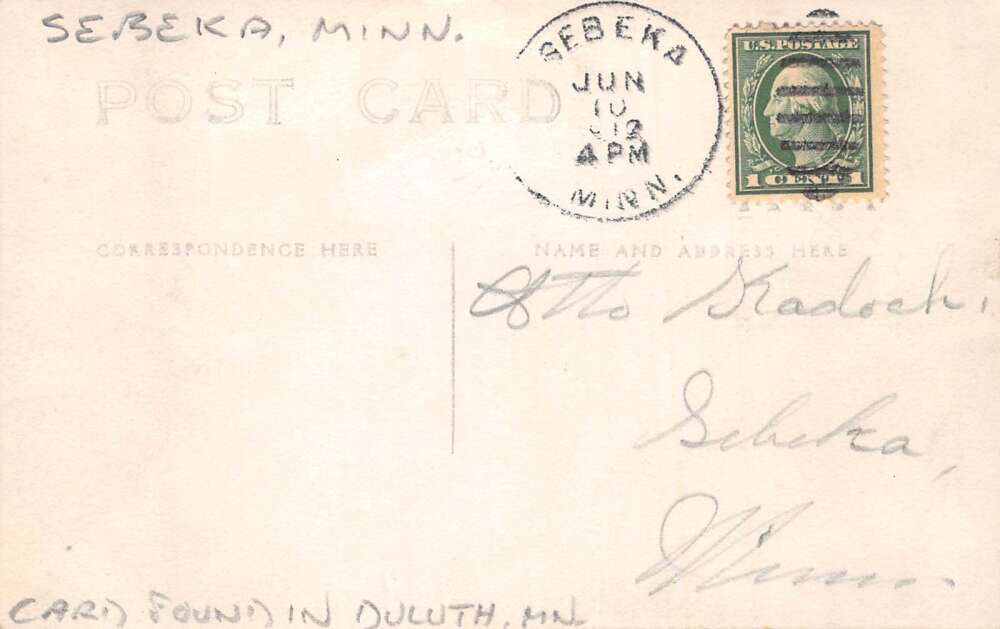 SEBEKA, MINN.
POST CARD
SEBEKA
JUN
10
4 PM
MINN.
U.S. POSTAGE
1 CENT 1
CORRESPONDENCE HERE
NAME AND ADDRESS HERE
Otto Kadoch.
Sebeka,
Minn.
CARD FOUND IN DULUTH, MN.